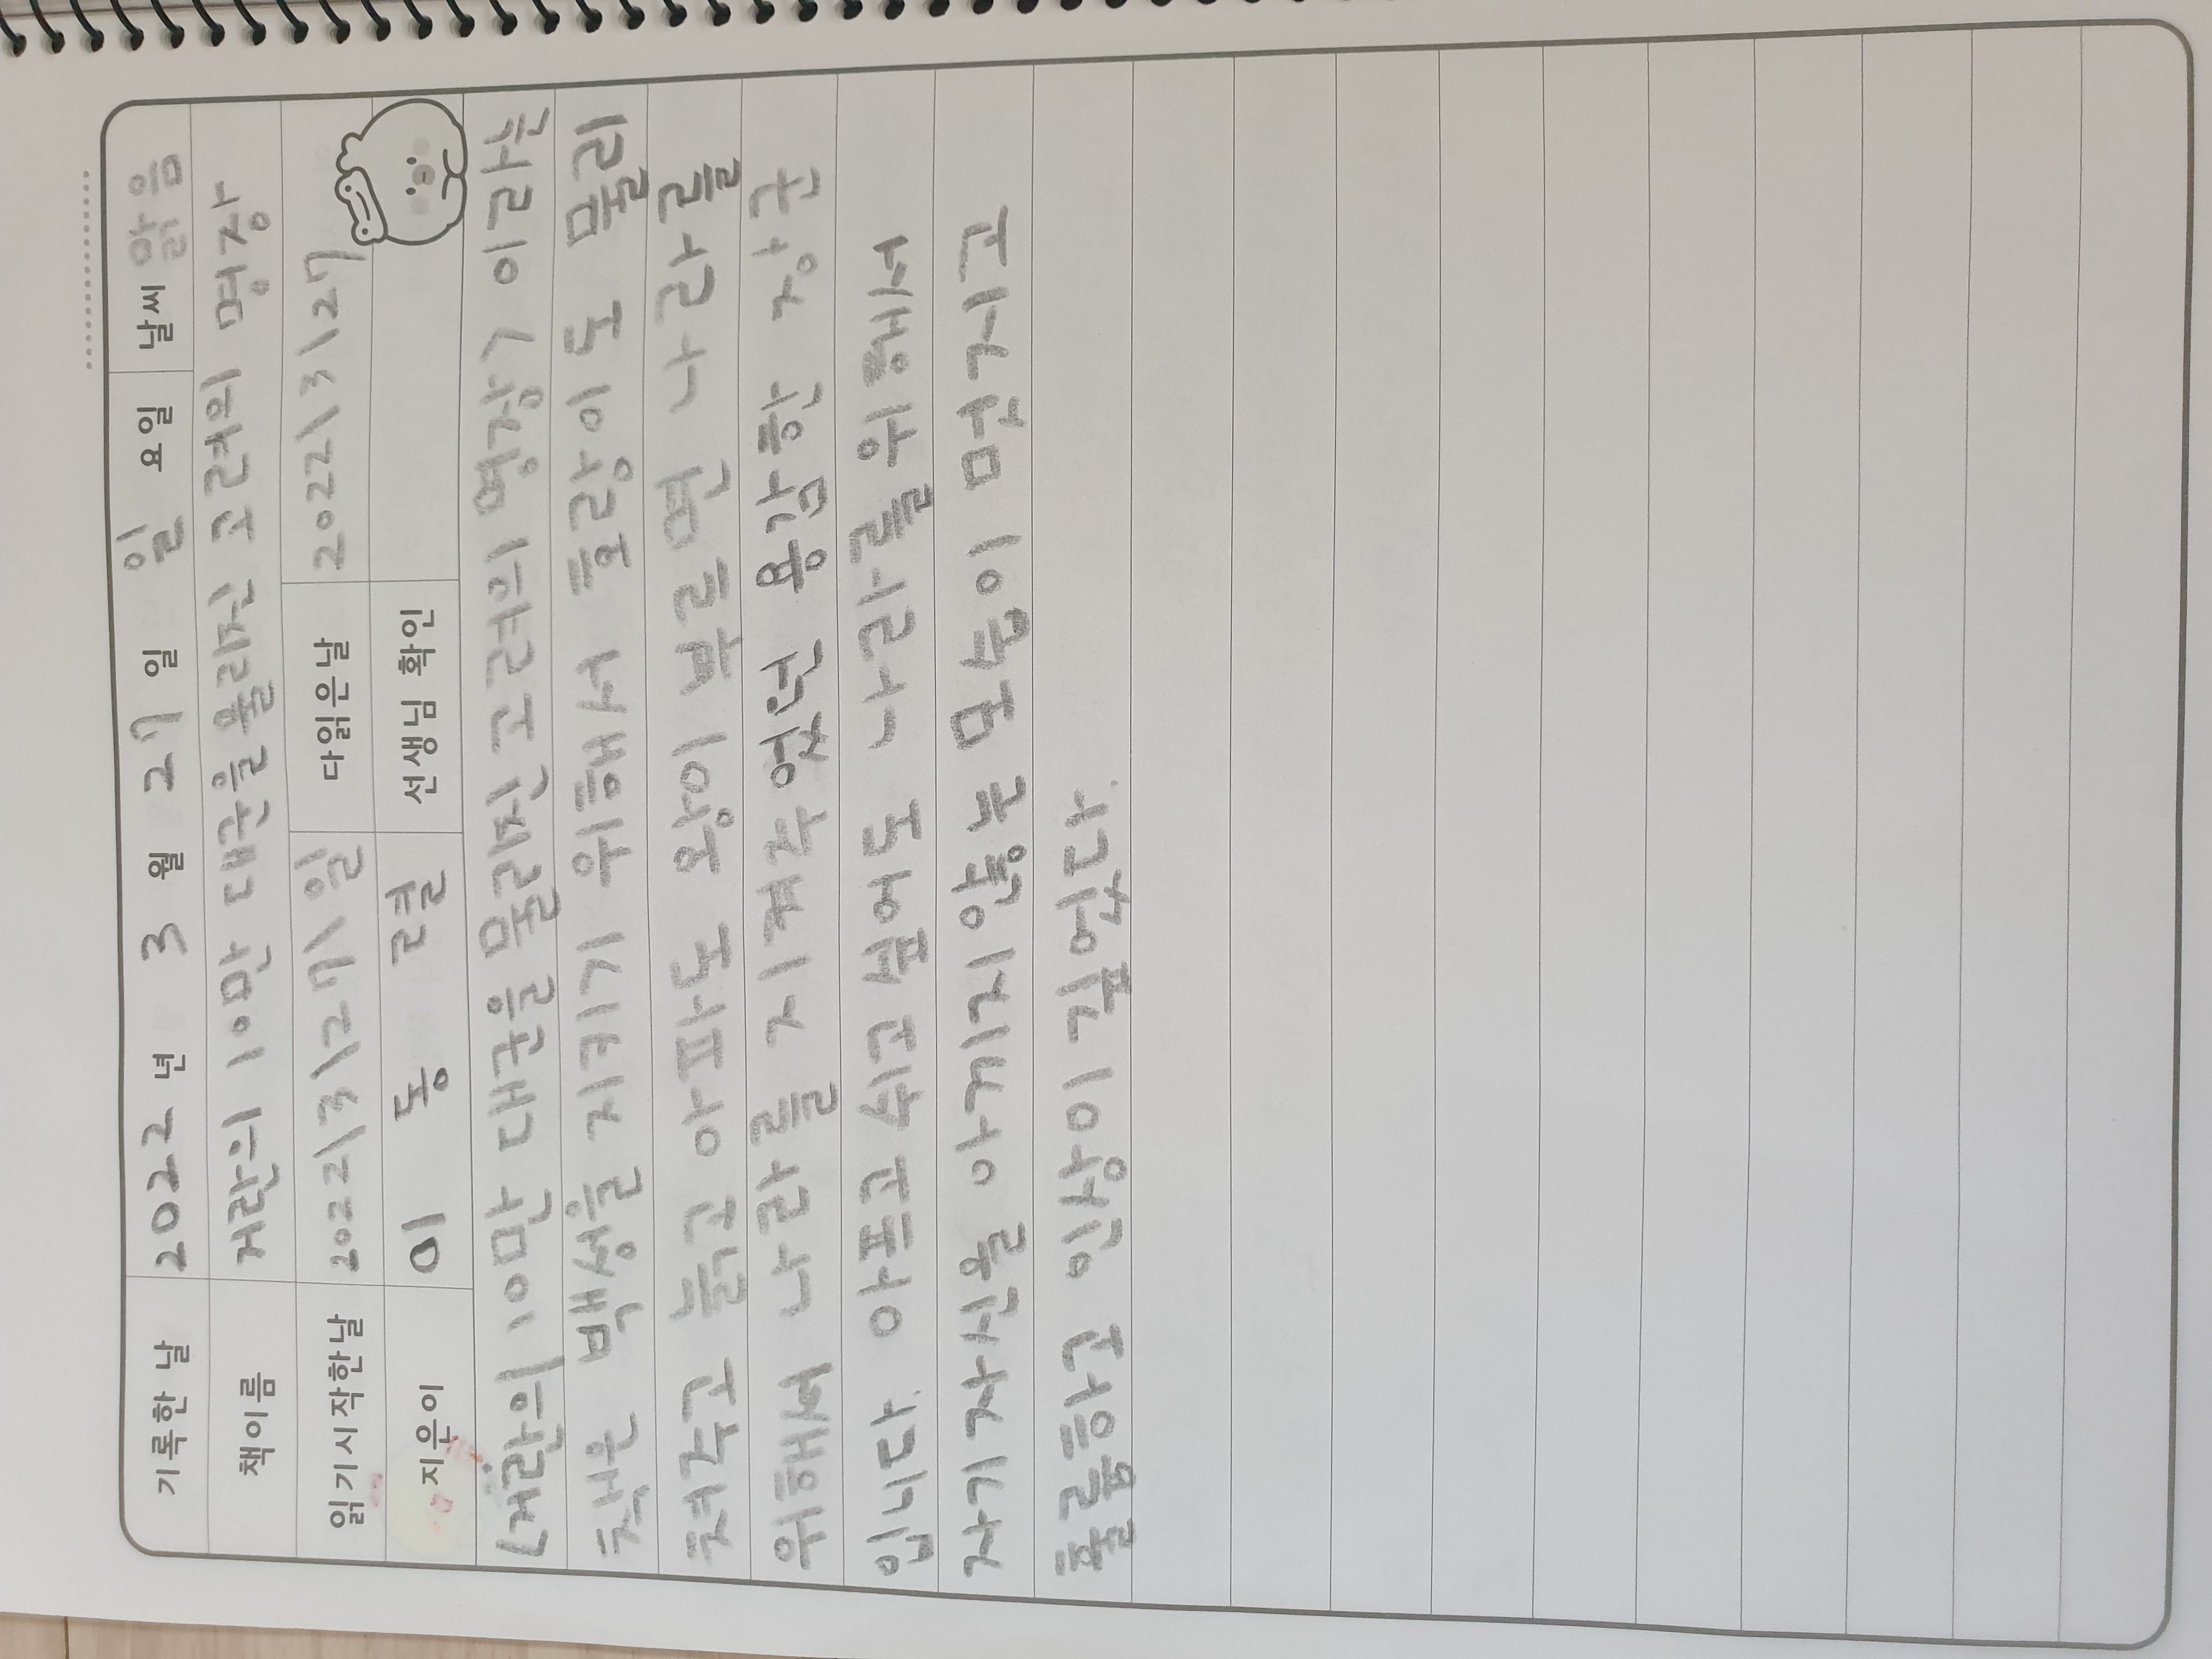 기록한 날 2022 년 3 월 27 일 일 요일 날씨 맑음
책이름 거란의 10만 대군을 물리진 고려의 명장
읽기시작한날 2022\3\27\일 다읽은날 2022\3\27
지은이 이 동 렬 선생님 확인
<거란의 10만 대군을 물리진 고려의 명장> 이라는
책은 백성을 지키기 위해서 호랑이도 물리
쳐주고 늙고 아파도 왕이 부르면 나라를
위해서 나라를 지켜주었던 용감한 장군
입니다. 아프고 쉬고 싶어도 나라를 위해서
자기 자신을 아끼지 않는 모습이 멋지고
훌륭하고 인상이 깊었다.